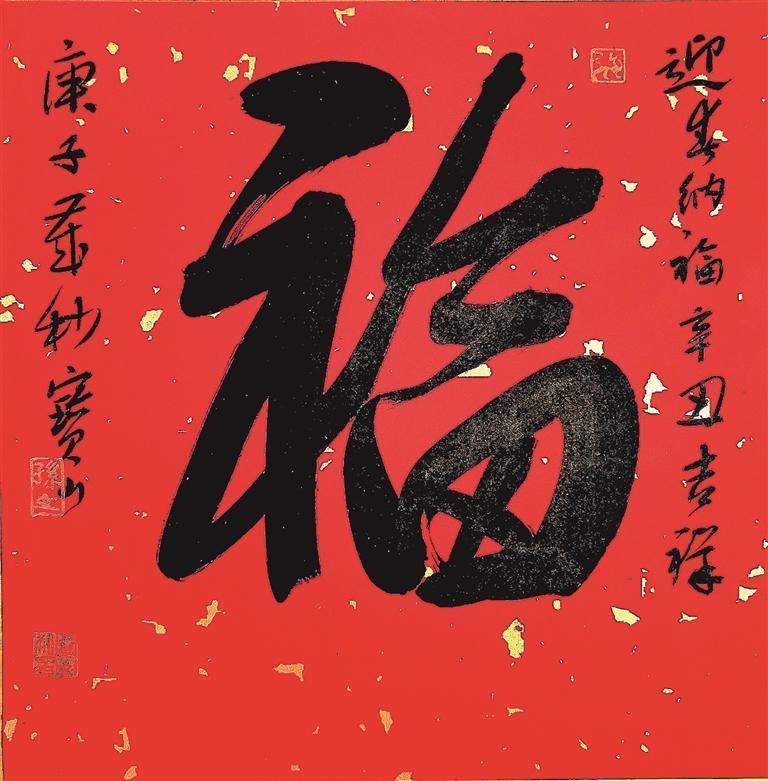 迎春纳福辛丑吉祥
福
庚子歲杪寶山